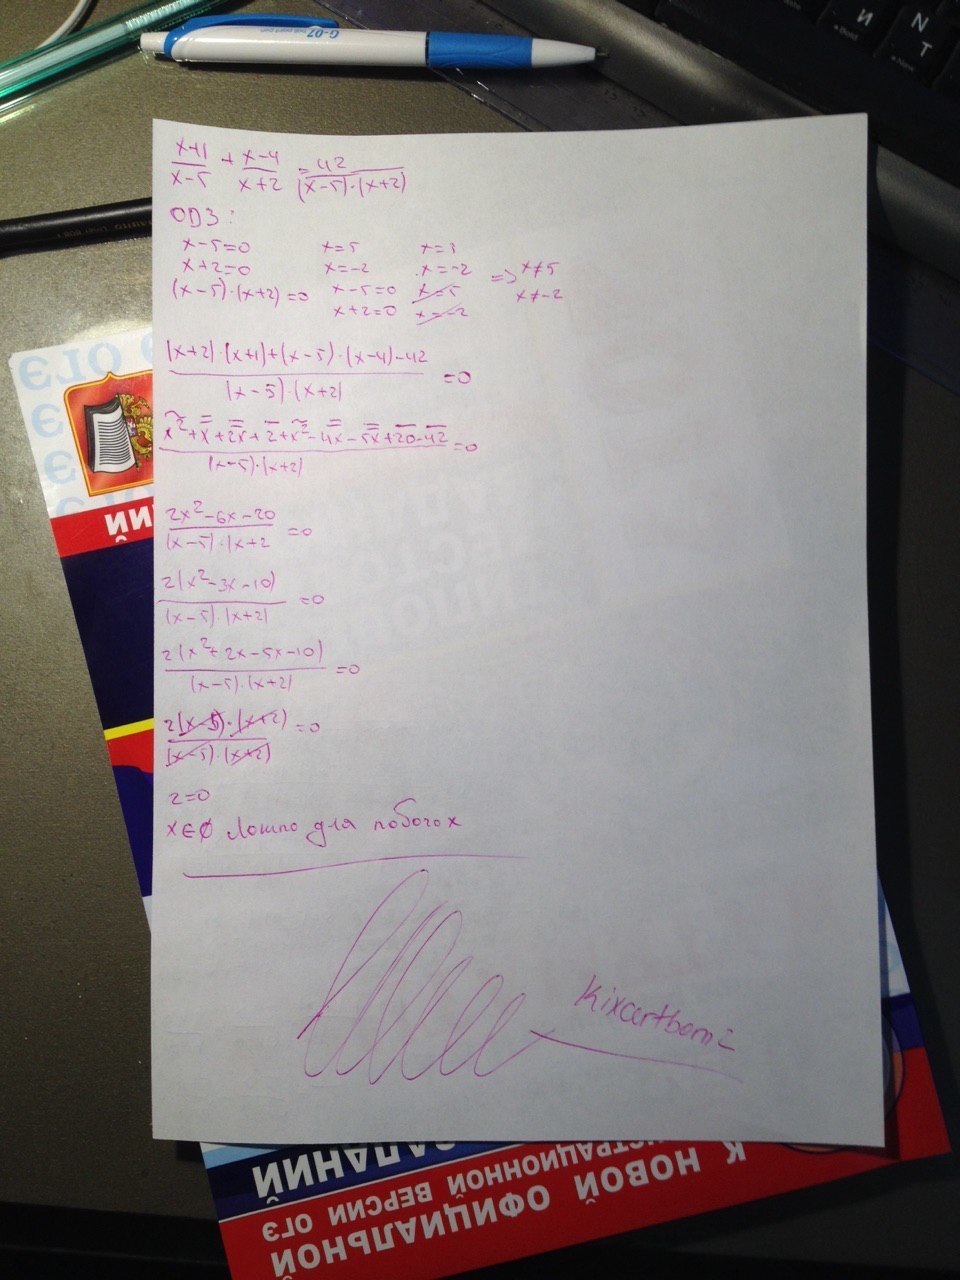 G-07
x+1/x-5 + x-4/x+2 = 42/(x-5)·(x+2)
ОДЗ:
x-5=0 x=5 x=5
x+2=0 x=-2 x=-2 => x≠5
(x-5)·(x+2)=0 x-5=0 x=5 x≠-2
x+2=0 x=-2
(x+2)·(x+1)+(x-5)·(x-4)-42/(x-5)·(x+2) =0
x²+x+2x+2+x²-4x-5x+20-42/(x-5)·(x+2) =0
2x²-6x-20/(x-5)·(x+2 =0
2(x²-3x-10)/(x-5)·(x+2) =0
2(x²+2x-5x-10)/(x-5)·(x+2) =0
2(x-5)·(x+2)/(x-5)·(x+2) =0
2=0
x∈∅ для x
ОГЭ
НИЙ
ЗАДАНИЙ
К НОВОЙ ОФИЦИАЛЬНОЙ
ВЕРСИИ ОГЭ